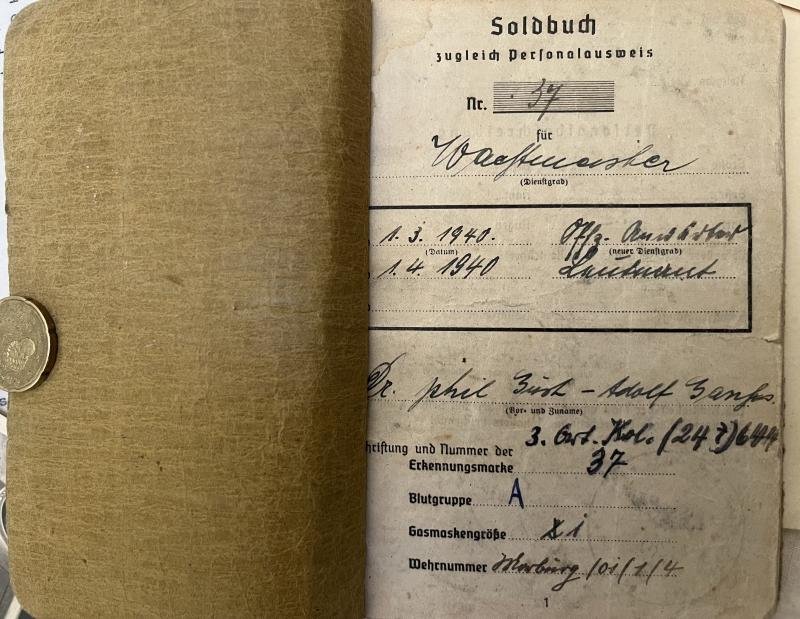 Soldbuch
zugleich Personalausweis
Nr. 37
für
Wachtmeister
(Dienstgrad)
1. 3. 1940. Offz. Anwärter
(Datum) (neuer Dienstgrad)
1. 4. 1940 Leutnant
Dr. phil - Adolf
(Vor- und Zuname)
hriftung und Nummer der 3. Kol. (247) 644
Erkennungsmarke 37
Blutgruppe A
Gasmaskengröße i
Wehrnummer Marburg /01/1/4
1